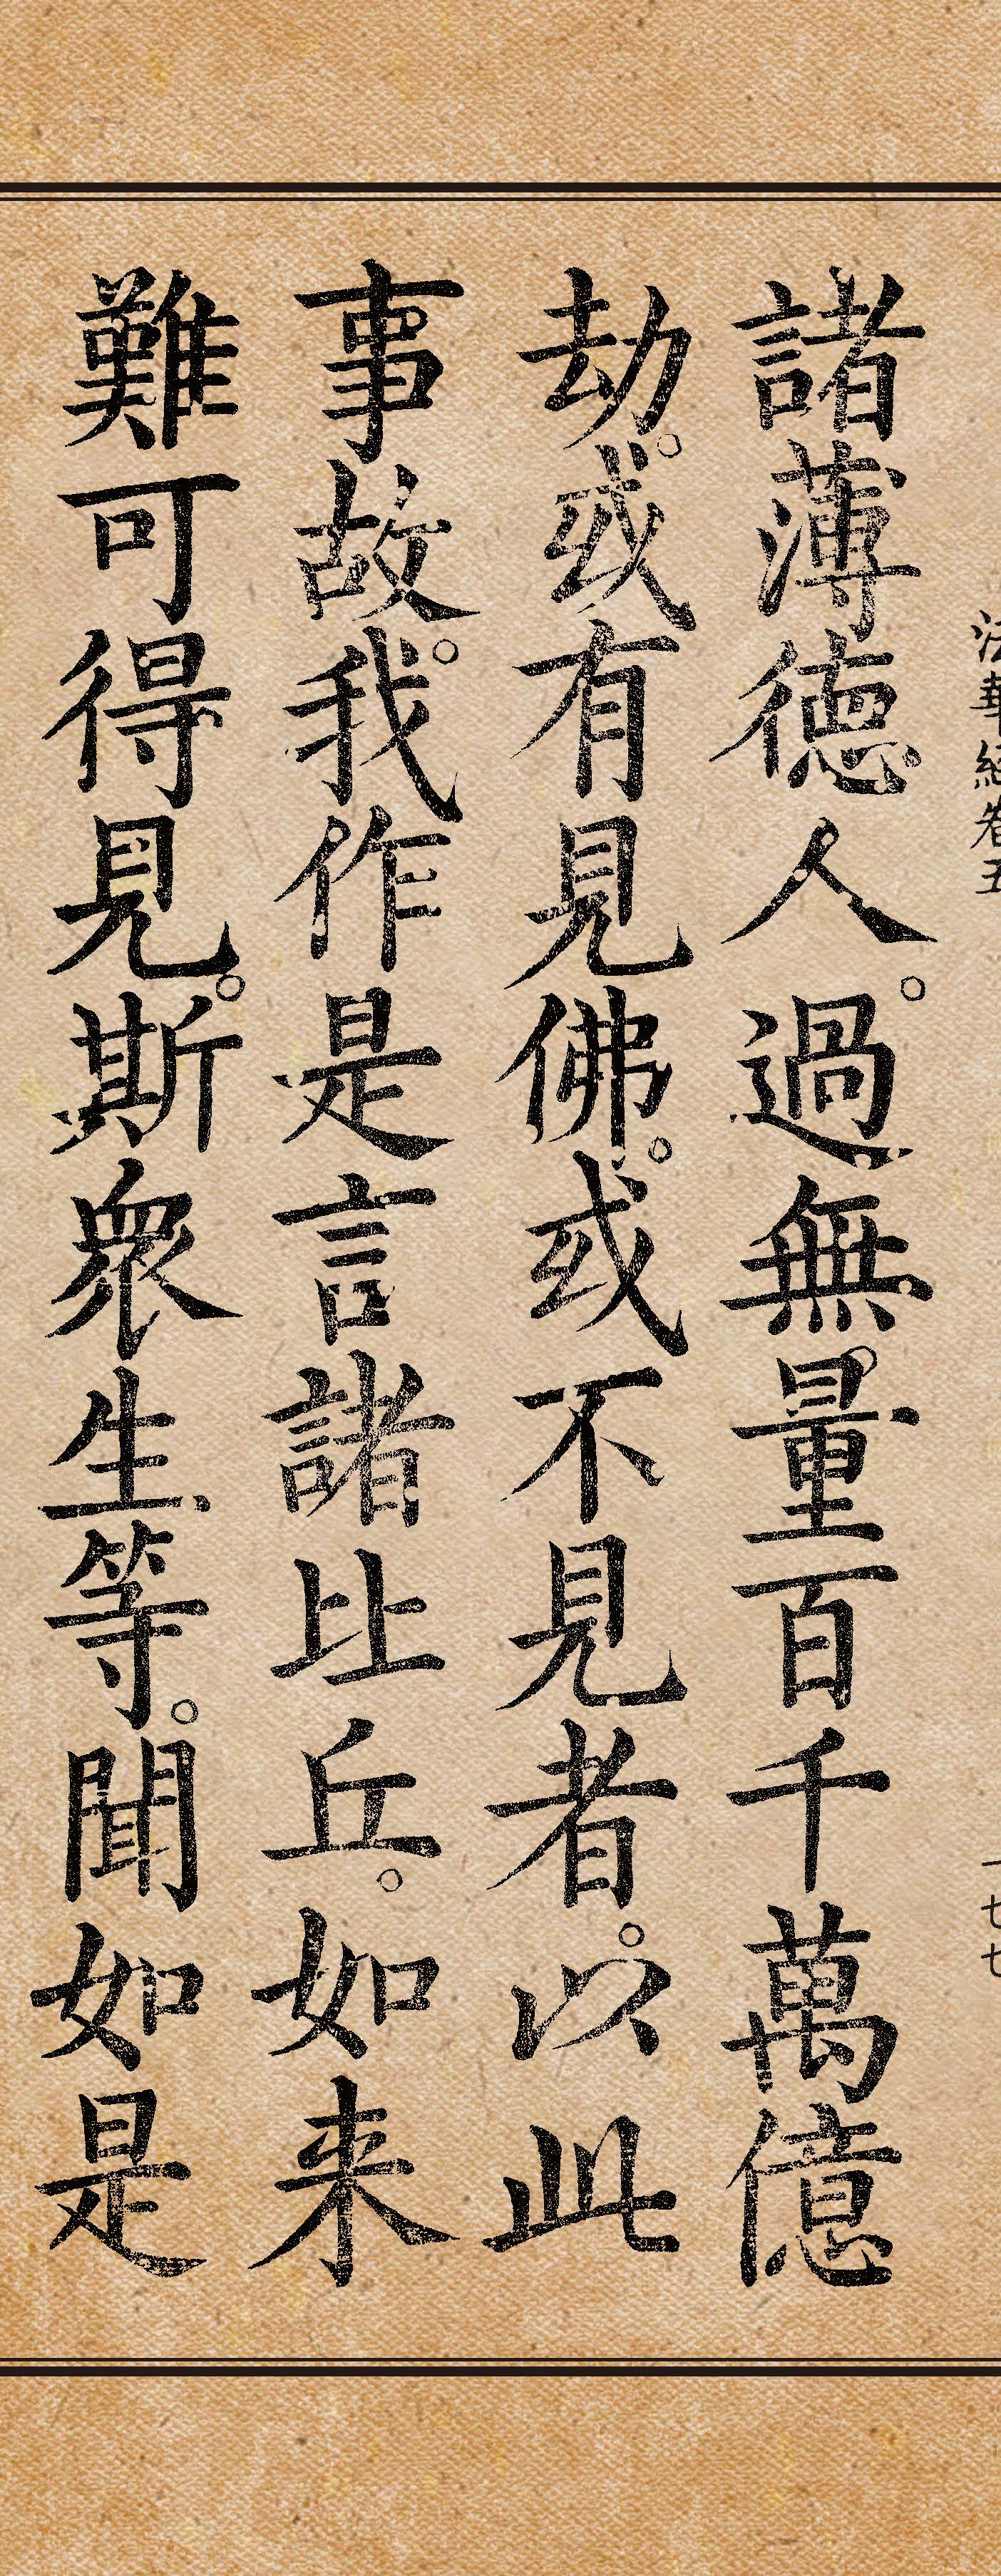 法華經卷五
一七七
諸薄德人。過無量百千萬億
劫。或有見佛。或不見者。以此
事故。我作是言諸比丘。如来
難可得見。斯衆生等。聞如是